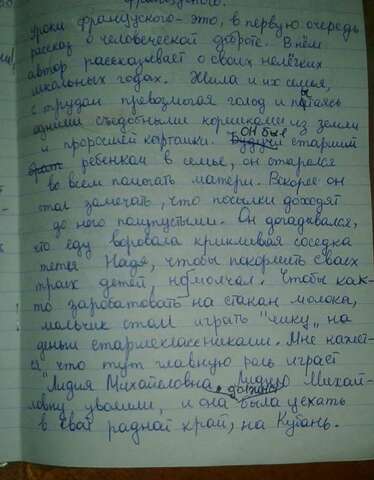 французского.
уроки французского - это, в первую очередь
рассказ о человеческой доброте. В нём
автор рассказывает о своих нелёгких
школьных годах. Жила и их семья,
с трудом превозмогая голод и питаясь
одними съедобными корешками из земли
и проросшей картошки. Будучи он был старший
брат ребенком в семье, он старался
во всем помогать матери. Вскоре он
стал замечать, что посылки доходят
до него полупустыми. Он догадывался,
что еду воровала крикливая соседка
тетя Надя, чтобы покормить своих
троих детей, но молчал. Чтобы как-
то заработовать на стакан молока,
мальчик стал играть "чику" на
деньги старшеклассниками. Мне кажет-
ся что тут главную роль играет
"Лидия Михайловна. Лидию Михай-
ловну уволили, и она должна была уехать
в свой радной край, на Кубань.